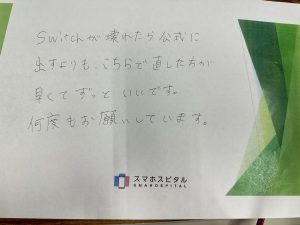 Switchが壊れたら公式に
出すよりも、こちらで直した方が
早くてずっといいです。
何度もお願いしています。
スマホスピタル
SMAHOSPITAL